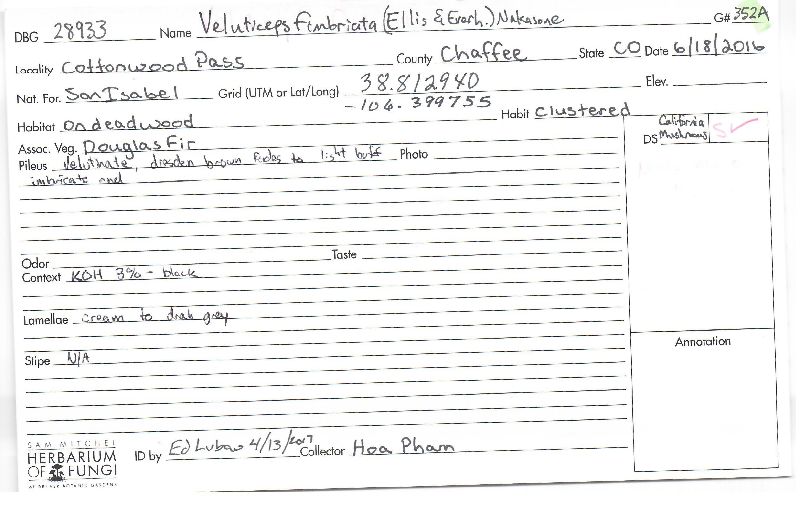 DBG 28933 Name Veluticeps fimbriata (Ellis & Everh.) Nakasone G# 352A
Locality Cottonwood Pass County Chaffee State CO Date 6/18/2016
Nat. For. San Isabel Grid (UTM or Lat/Long) 38.812940 Elev.
-106.399755
Habitat on deadwood Habit clustered
Assoc. Veg. Douglas Fir
Pileus velutinate, dresden brown fades to light buff Photo
imbricate and
California
DS Mushrooms
Odor Taste
Context KOH 3% - black
Lamellae cream to drab grey
Annotation
Stipe N/A
SAM MITCHEL
HERBARIUM
OF FUNGI
AT DENVER BOTANIC GARDENS
ID by Ed Lubow 4/13/2017 Collector Hoa Pham